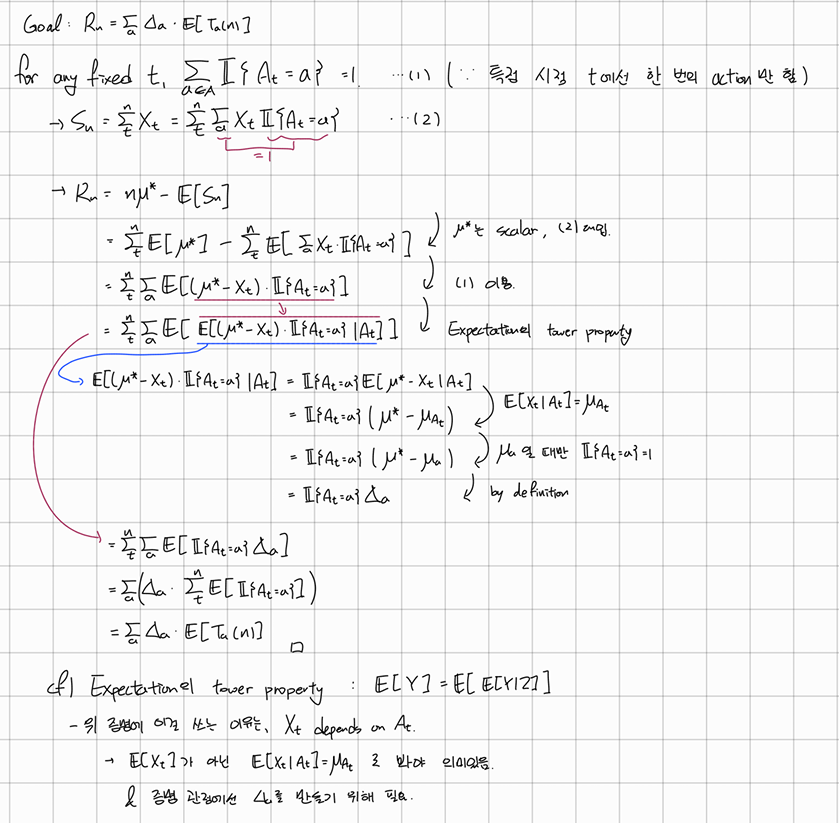 Goal: Rn = Σ_a Δa · 𝔼[Ta(n)]
for any fixed t, Σ_{a∈A} 𝕀{At = a} = 1. ···(1) (∵ 특정 시점 t에선 한 번의 action만 함)
→ Sn = Σ_t^n Xt = Σ_t^n Σ_a Xt 𝕀{At = a} ···(2)
= 1
→ Rn = nμ* - 𝔼[Sn]
= Σ_t^n 𝔼[μ*] - Σ_t^n 𝔼[Σ_a Xt · 𝕀{At = a}] μ*는 scalar, (2) 대입.
= Σ_t^n Σ_a 𝔼[(μ* - Xt) · 𝕀{At = a}] (1) 이용.
= Σ_t^n Σ_a 𝔼[𝔼[(μ* - Xt) · 𝕀{At = a} | At]] Expectation의 tower property
𝔼[(μ* - Xt) · 𝕀{At = a} | At] = 𝕀{At = a} 𝔼[μ* - Xt | At]
= 𝕀{At = a} (μ* - μ_{At}) 𝔼[Xt | At] = μ_{At}
= 𝕀{At = a} (μ* - μa) μa일 때만 𝕀{At = a} = 1
= 𝕀{At = a} Δa by definition
= Σ_t^n Σ_a 𝔼[𝕀{At = a} Δa]
= Σ_a (Δa · Σ_t^n 𝔼[𝕀{At = a}])
= Σ_a Δa · 𝔼[Ta(n)] □
cf) Expectation의 tower property : 𝔼[Y] = 𝔼[𝔼[Y|Z]]
- 위 증명에 이걸 쓰는 이유는, Xt depends on At.
→ 𝔼[Xt]가 아닌 𝔼[Xt | At] = μ_{At} 로 봐야 의미있음.
& 증명 관점에선 Δa를 만들기 위해 필요.